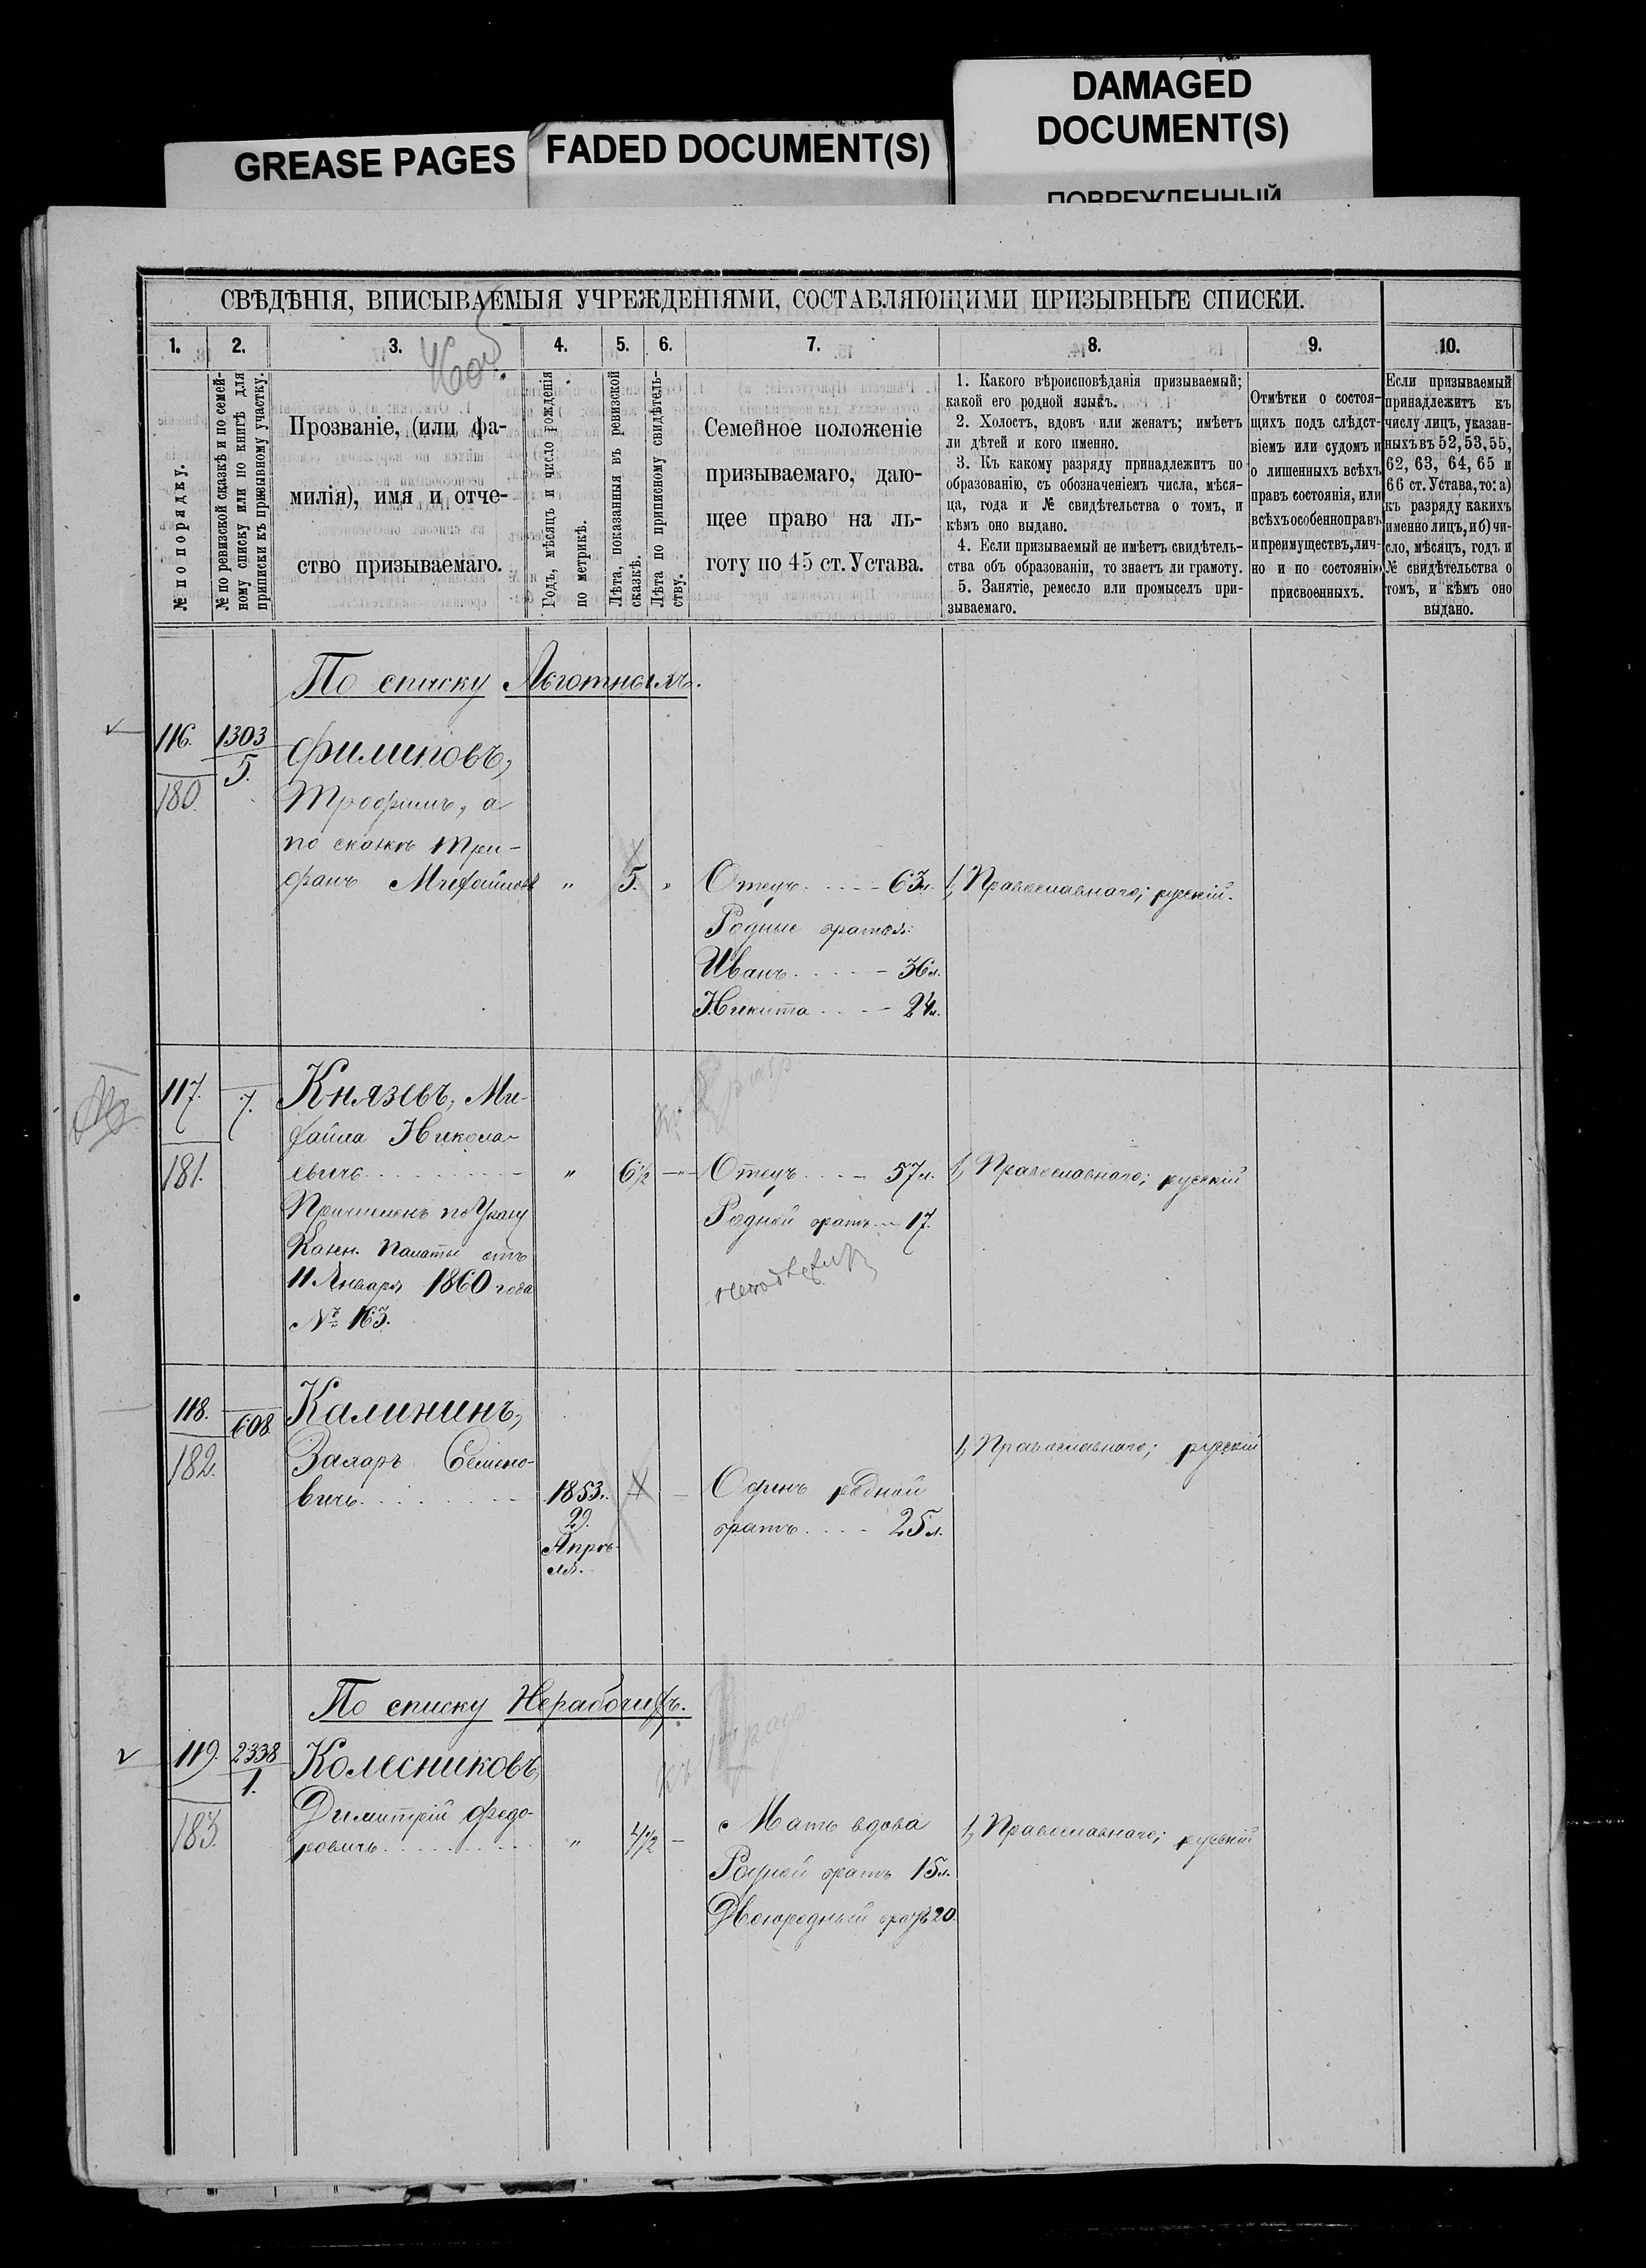 GREASE PAGES
FADED DOCUMENT(S)
DAMAGED
DOCUMENT(S)
ПОВРЕЖДЕННЫЙ
СВѢДѢНІЯ, ВПИСЫВАЕМЫЯ УЧРЕЖДЕНІЯМИ, СОСТАВЛЯЮЩИМИ ПРИЗЫВНЫЕ СПИСКИ.
1. 2. 3. 4. 5. 6. 7. 8. 9. 10.
№ по порядку.
№ по ревизской сказкѣ и по семей-
ному списку или по книгѣ для
приписки къ призывному участку.
Прозваніе, (или фа-
милія), имя и отче-
ство призываемаго.
Годъ, мѣсяцъ и число рожденія
по метрикѣ.
Лѣта, показанныя въ ревизской
сказкѣ.
Лѣта по приписному свидѣтель-
ству.
Семейное положеніе
призываемаго, даю-
щее право на ль-
готу по 45 ст. Устава.
1. Какого вѣроисповѣданія призываемый;
какой его родной языкъ.
2. Холостъ, вдовъ или женатъ; имѣетъ
ли дѣтей и кого именно.
3. Къ какому разряду принадлежитъ по
образованію, съ обозначеніемъ числа, мѣся-
ца, года и № свидѣтельства о томъ, и
кѣмъ оно выдано.
4. Если призываемый не имѣетъ свидѣтель-
ства объ образованіи, то знаетъ ли грамоту.
5. Занятіе, ремесло или промыселъ при-
зываемаго.
Отмѣтки о состоя-
щихъ подъ слѣдст-
віемъ или судомъ и
о лишенныхъ всѣхъ
правъ состоянія, или
всѣхъ особенно правъ
и преимуществъ, лич-
но и по состоянію
присвоенныхъ.
Если призываемый
принадлежитъ къ
числу лицъ, указан-
ныхъ въ 52, 53, 55,
62, 63, 64, 65 и
66 ст. Устава, то: а)
къ разряду какихъ
именно лицъ, и б) чи-
сло, мѣсяцъ, годъ и
№ свидѣтельства о
томъ, и кѣмъ оно
выдано.
По списку Льготныхъ.
116. 1303 Филиповъ,
5.
180. Трофимъ, а
по сказкѣ Три-
фанъ Михайловъ " 5. " Отецъ..... 63 л. 1, Православнаго; русскій.
Родные братья:
Иванъ..... 36 л.
Никита..... 24 л.
117. 7. Князевъ, Ми-
хайла Никола-
181. евичъ........ " 6½ " Отецъ.... 57 л. 1, Православнаго; русскій
Причисленъ по Указу Родной братъ.. 17.
Казен. Палаты отъ
11 Января 1860 года
№ 163.
118. 608. Калининъ,
182. Захаръ Семено- 1, Православнаго; русскій
вичъ........ 1853 г. Одинъ родной
29. братъ.... 25 л.
Апрѣ-
ля.
По списку Нерабочихъ.
119. 2338 Колесниковъ,
1.
183. Димитрій Федо- Мать вдова 1, Православнаго; русскій
ровичъ........ " 4½ Родной братъ 15 л.
Двоюродный братъ 20.